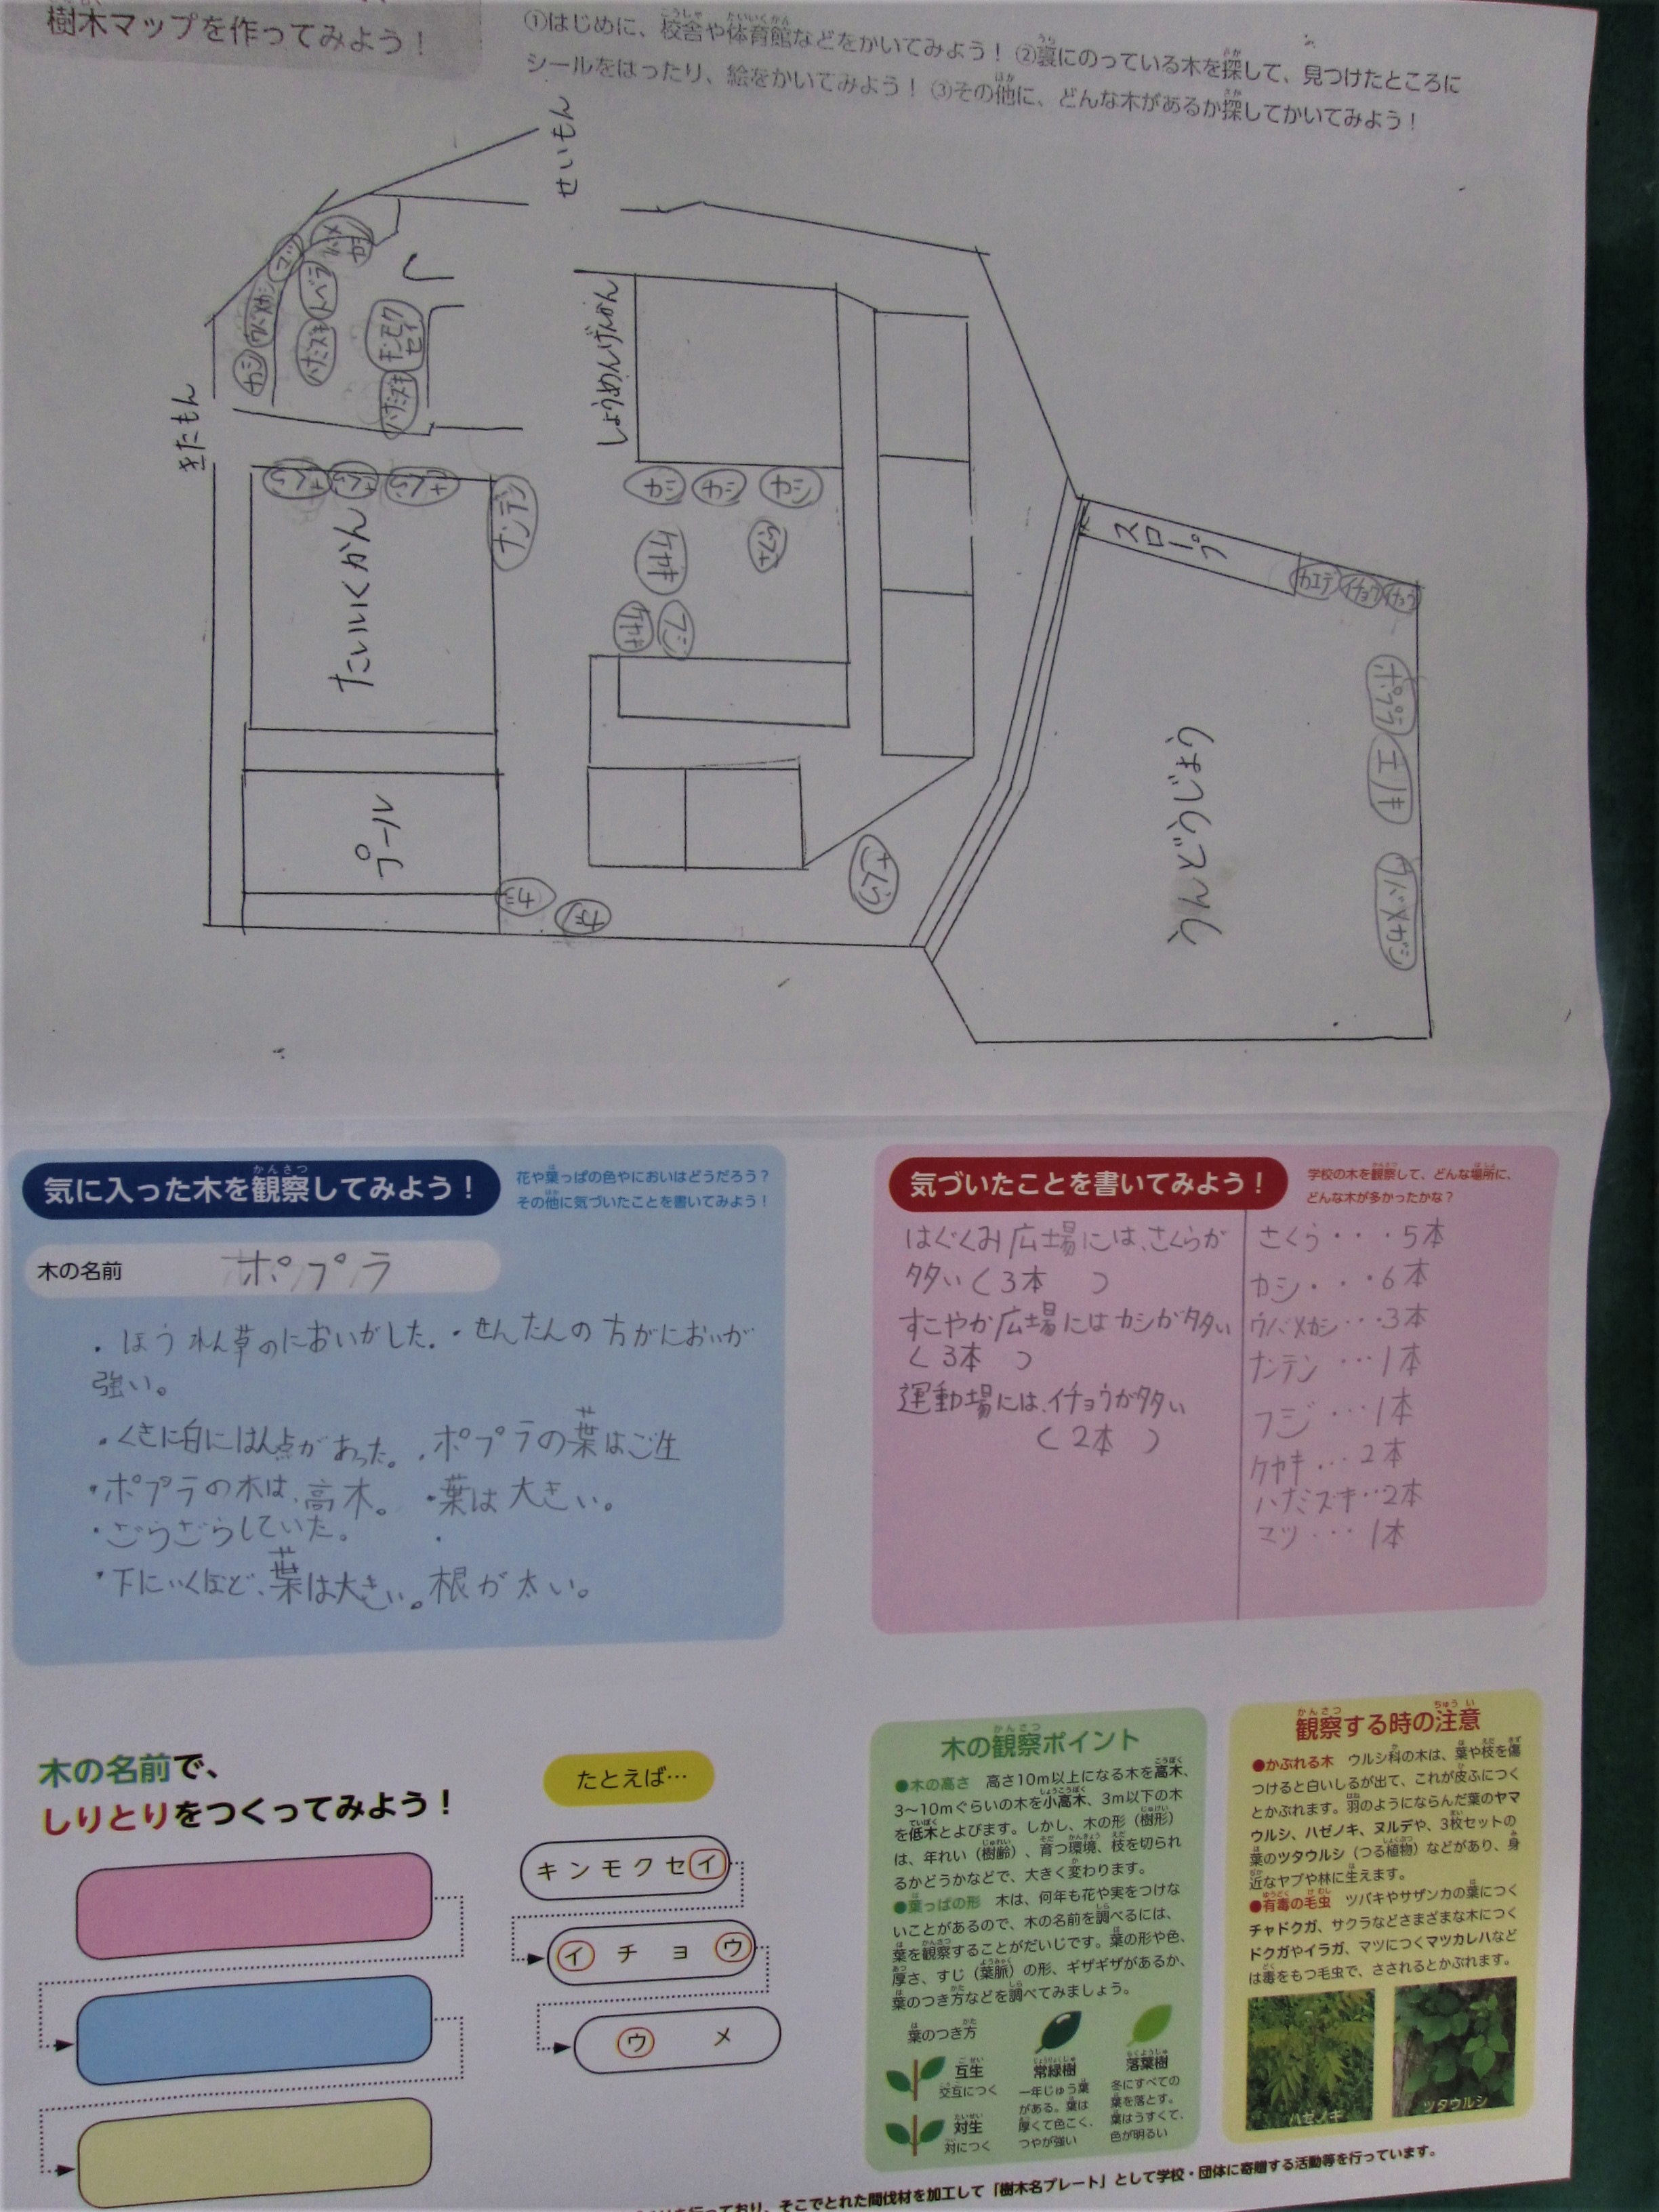 樹木マップを作ってみよう！
①はじめに、校舎や体育館などをかいてみよう！ ②裏にのっている木を探して、見つけたところに
シールをはったり、絵をかいてみよう！ ③その他に、どんな木があるか探してかいてみよう！
せいもん
きたもん
マツ
トベラ
ウバメガシ
カシ
ハナミズキ
キンモクセイ
ハナミズキ
しょうめんげんかん
さくら
さくら
さくら
ナンテン
カシ
カシ
カシ
ケヤキ
さくら
ケヤキ
フジ
たいいくかん
プール
さくら
スロープ
カエデ
イチョウ
イチョウ
ポプラ
エノキ
ウバメガシ
うんどうじょう
気に入った木を観察してみよう！
花や葉っぱの色やにおいはどうだろう？
その他に気づいたことを書いてみよう！
木の名前 ポプラ
・ほうれん草のにおいがした。・せんたんの方がにおいが
強い。
・くきに白にはん点があった。・ポプラの葉はご生
・ポプラの木は、高木。 ・葉は大きい。
・ごうごうしていた。 ・
・下にいくほど、葉は大きい。根が太い。
気づいたことを書いてみよう！
学校の木を観察して、どんな場所に、
どんな木が多かったかな？
はぐくみ広場には、さくらが
多い（3本 ）
すこやか広場にはカシが多い
（3本 ）
運動場には、イチョウが多い
（2本 ）
さくら・・・5本
カシ・・・6本
ウバメガシ・・・3本
ナンテン・・・1本
フジ・・・1本
ケヤキ・・・2本
ハナミズキ・・2本
マツ・・・1本
木の名前で、
しりとりをつくってみよう！
たとえば…
キンモクセイ
イチョウ
ウメ
木の観察ポイント
●木の高さ 高さ10m以上になる木を高木、
3〜10mぐらいの木を小高木、3m以下の木
を低木とよびます。しかし、木の形（樹形）
は、年れい（樹齢）、育つ環境、枝を切られ
るかどうかなどで、大きく変わります。
●葉っぱの形 木は、何年も花や実をつけな
いことがあるので、木の名前を調べるには、
葉を観察することがだいじです。葉の形や色、
厚さ、すじ（葉脈）の形、ギザギザがあるか、
葉のつき方などを調べてみましょう。
葉のつき方
互生
交互につく
対生
対につく
常緑樹
一年じゅう葉
がある。葉は
厚くて色こく、
つやが強い
落葉樹
冬にすべての
葉を落とす。
葉はうすくて、
色が明るい
観察する時の注意
●かぶれる木 ウルシ科の木は、葉や枝を傷
つけると白いしるが出て、これが皮ふにつく
とかぶれます。羽のようにならんだ葉のヤマ
ウルシ、ハゼノキ、ヌルデや、3枚セットの
葉のツタウルシ（つる植物）などがあり、身
近なヤブや林に生えます。
●有毒の毛虫 ツバキやサザンカの葉につく
チャドクガ、サクラなどさまざまな木につく
ドクガやイラガ、マツにつくマツカレハなど
は毒をもつ毛虫で、さされるとかぶれます。
ハゼノキ
ツタウルシ
を行っており、そこでとれた間伐材を加工して「樹木名プレート」として学校・団体に寄贈する活動等を行っています。